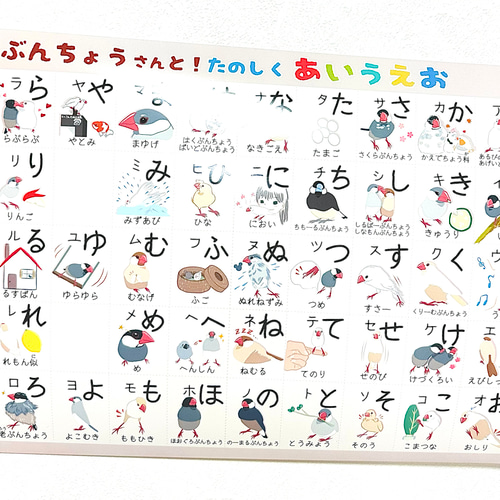 ぶんちょうさんと！たのしく あいうえお
ラ ら
らぶらぶ
ヤ や
やとみ
まゆげ
はくぶんちょう
ぱいどぶんちょう
ナ な
なきごえ
タ た
たまご
サ さ
さくらぶんちょう
カ か
かえでちょう科
ア
り
りんご
ミ み
みずあび
ヒ ひ
ひな
ニ に
におい
チ ち
ちもーるぶんちょう
シ し
しるばーぶんちょう
しなもんぶんちょう
キ き
きゅうり
ル る
るすばん
ユ ゆ
ゆらゆら
ム む
むなげ
フ ふ
ふご
ヌ ぬ
ぬれねずみ
ツ つ
つめ
ス す
すさー
ク く
くりーむぶんちょう
ウ
レ れ
れもん似
メ め
め
ヘ へ
へんしん
ネ ね
ねむる
テ て
てのり
セ せ
せのび
ケ け
けづくろい
エ
えびし
ロ ろ
老ぶんちょう
ヨ よ
よこむき
モ も
ももひき
ホ ほ
ほおぐろぶんちょう
ノ の
のーまるぶんちょう
ト と
とうみよう
ソ そ
そのう
コ こ
こまつな
オ
おしり